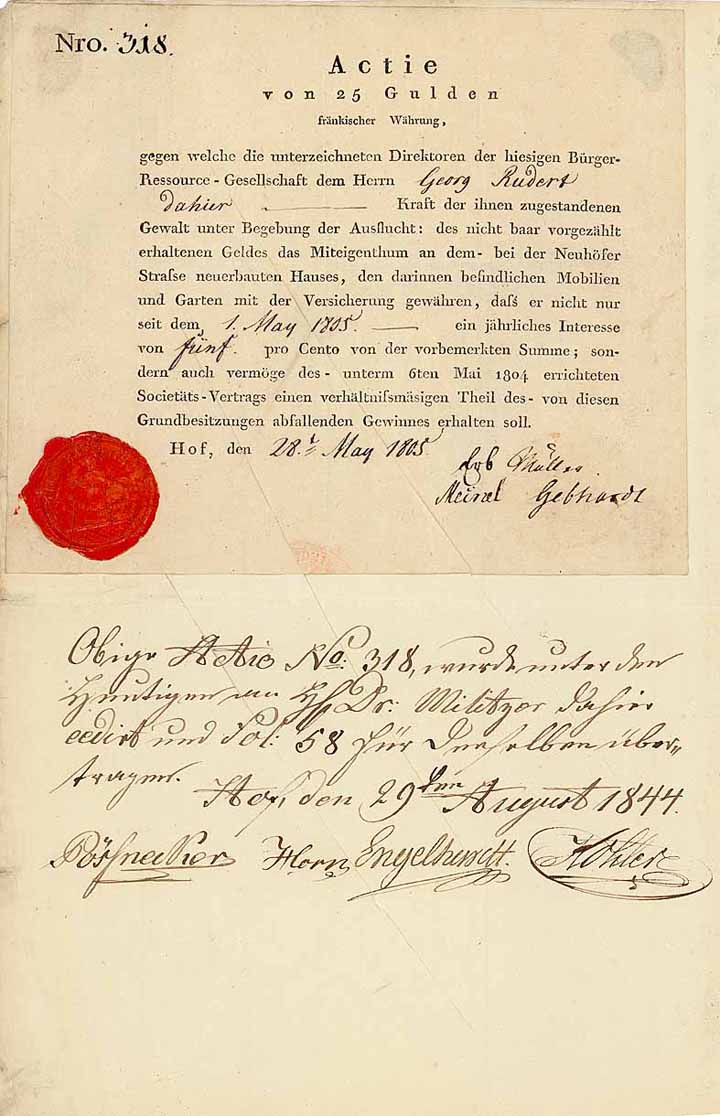 Nro. 318.
Actie
von 25 Gulden
fränkischer Währung,
gegen welche die unterzeichneten Direktoren der hiesigen Bürger-
Ressource-Gesellschaft dem Herrn Georg Rudert
dahier ——— Kraft der ihnen zugestandenen
Gewalt unter Begebung der Ausflucht: des nicht baar vorgezählt
erhaltenen Geldes das Miteigenthum an dem- bei der Neuhöfer
Strasse neuerbauten Hauses, den darinnen befindlichen Mobilien
und Garten mit der Versicherung gewähren, daſs er nicht nur
seit dem 1. May 1805. — ein jährliches Interesse
von fünf. pro Cento von der vorbemerkten Summe; son-
dern auch vermöge des- unterm 6ten Mai 1804 errichteten
Societäts-Vertrags einen verhältniſsmäsigen Theil des- von diesen
Grundbesitzungen abfallenden Gewinnes erhalten soll.
Hof, den 28. May 1805
Erb Müller.
Meinel Gebhardt
Obige Actie No: 318, wurde unter den
Heutigen an Dr. Militzer dahier
cedirt und Fol: 58 für denselben über„
tragen.
Hof, den 29ten August 1844.
Pößnecker Horn Engelhardt. Köhler